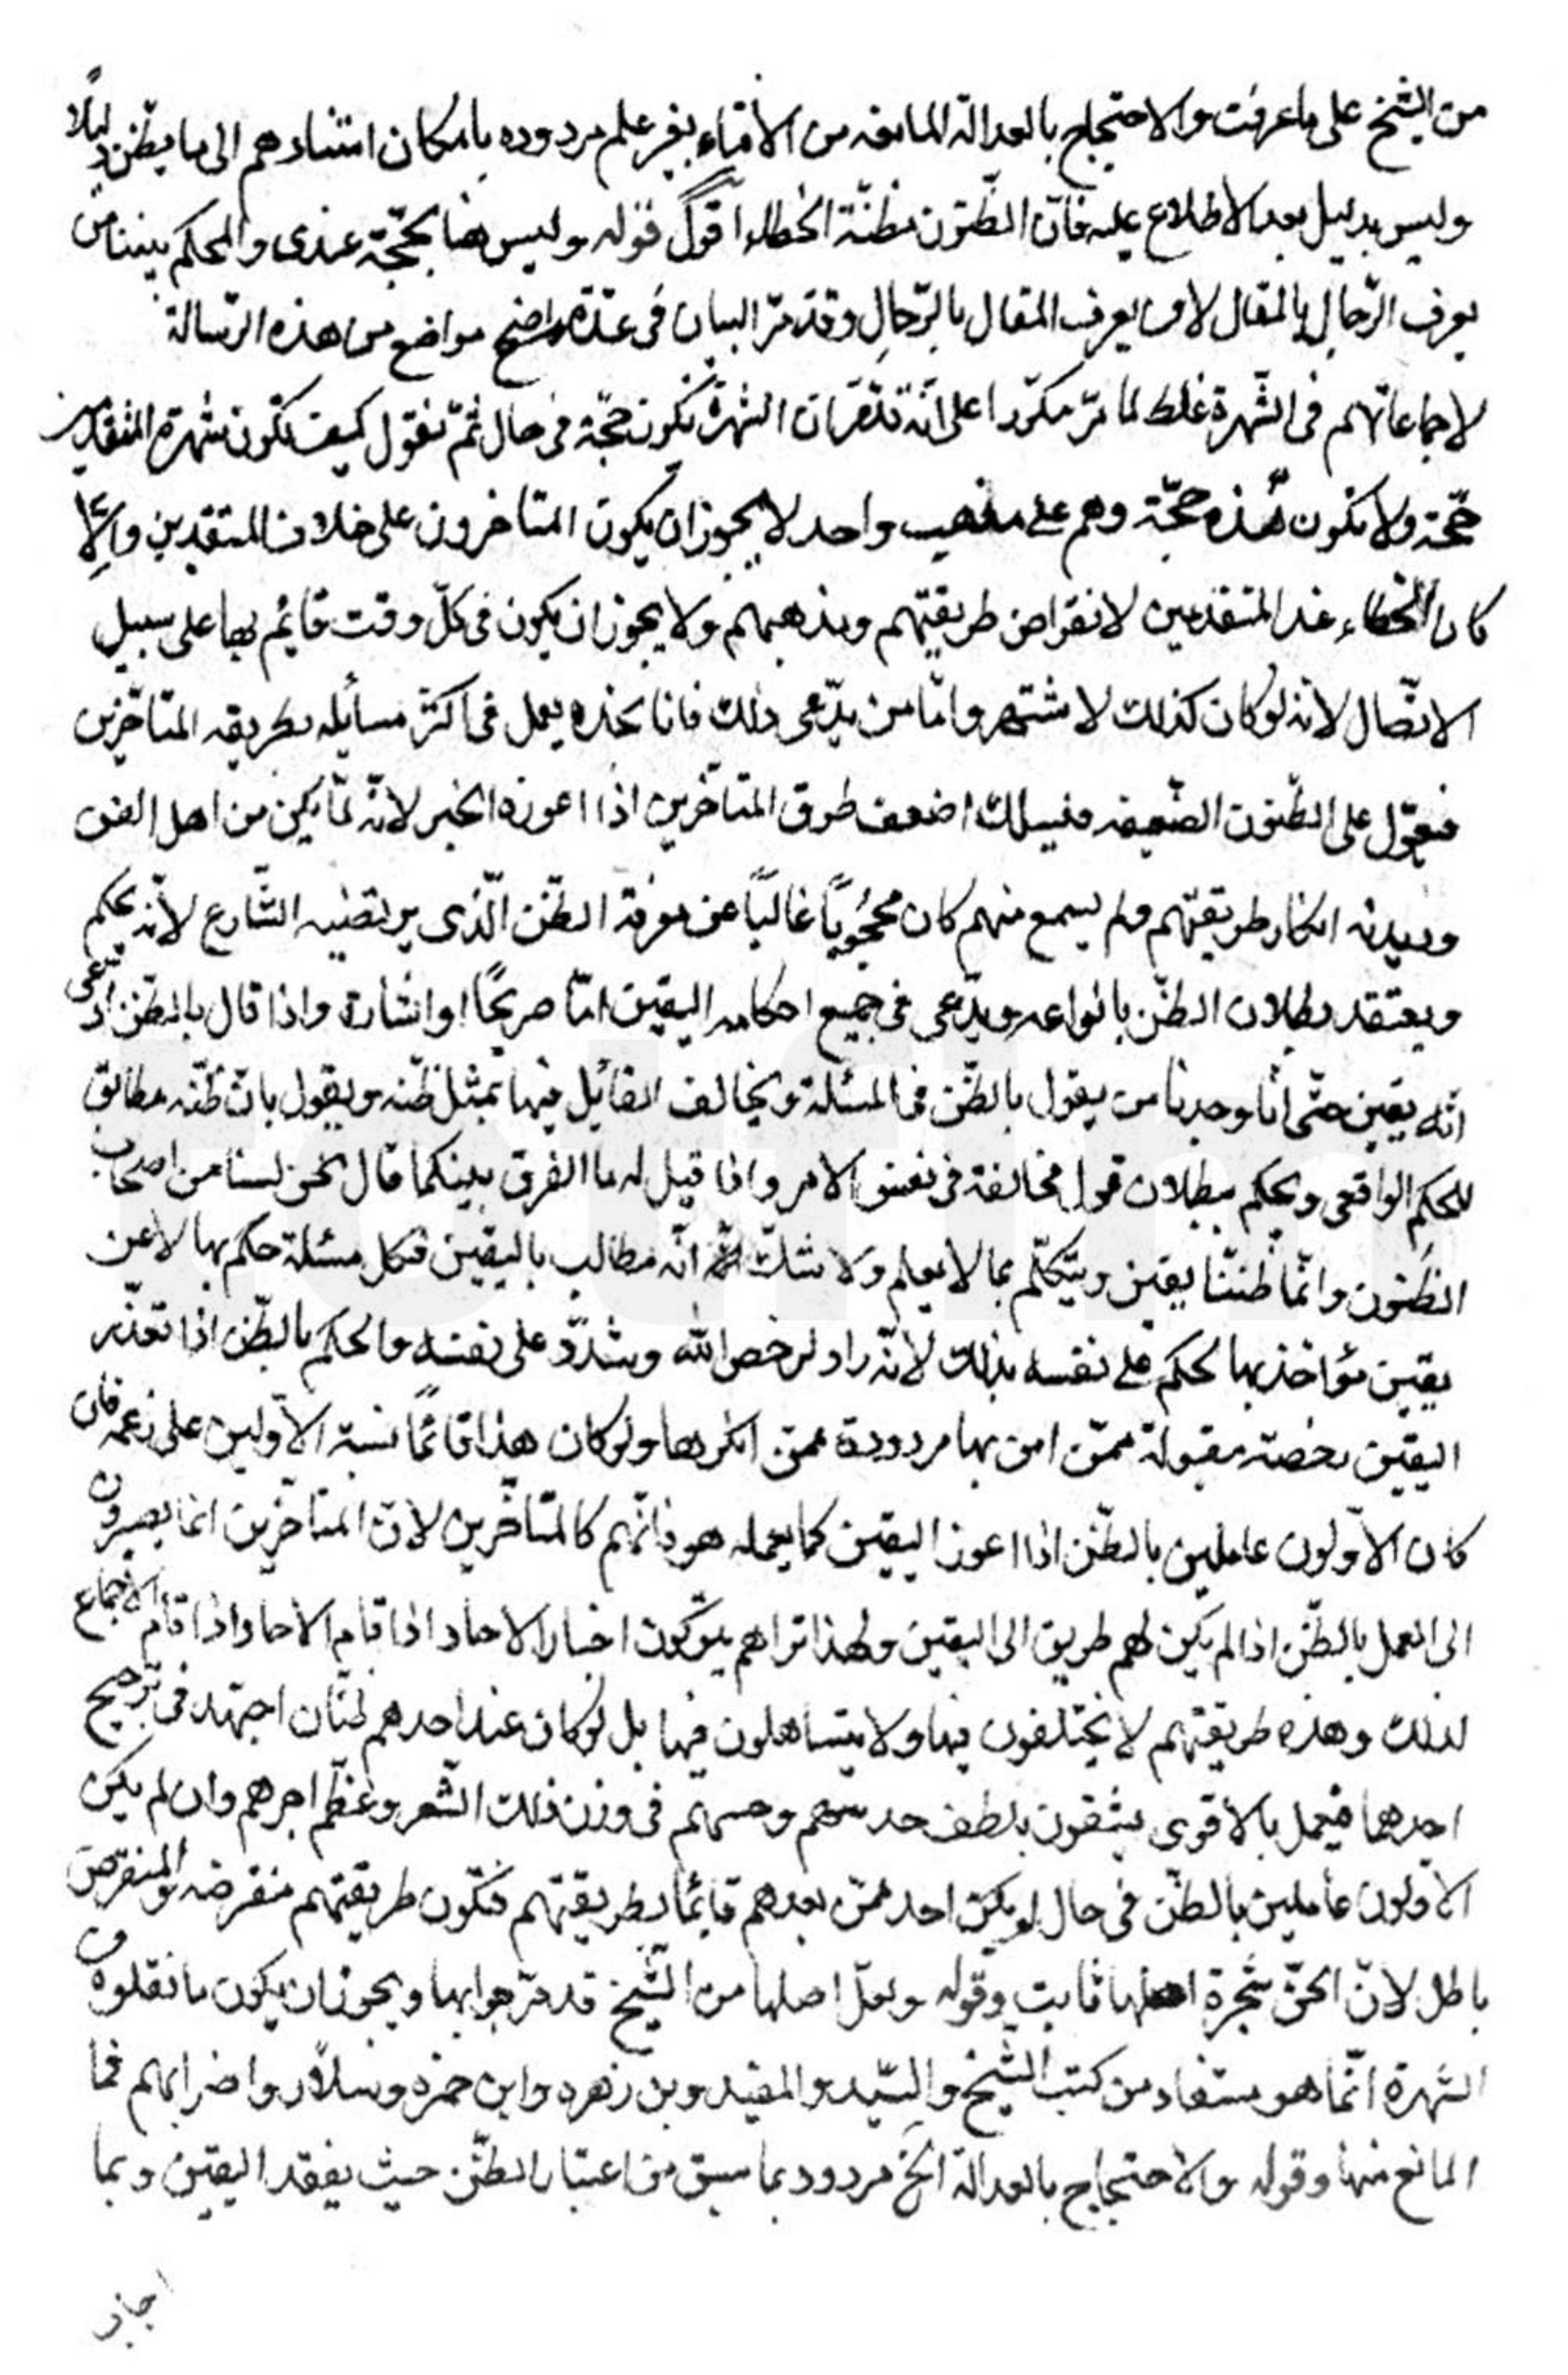 من الشيخ على ما عرفت والاحتجاج بالعدالة المانعه من الأفتاء بغير علم مردوده بامكان استنادهم الى ما يظن دليلًا
وليس بدليل بعد الاطلاع عليه فانّ الظّنون مظنّة الخطاء اقول قوله وليس هنا بحجّة عندى والمحكم بيننا من
يعرف الرّجال بالمقال لا من يعرف المقال بالرّجالِ وقد مرّ البيان فى عدّة مواضع من هذه الرّسالة
لاجماعاتهم فى الشّهرة غلط لما مرّ مكرّرا على انّه تدّعى انّ الشهرة تكون حجّة فى حال ثمّ نقول كيف تكون شهرة المتقدمين
حجّة ولا تكون هذه حجّة وهم على مذهب واحد لا يجوز ان يكون المتاخرون على خلاف المتقدّمين والّا
كان الخطاء عند المتقدمين لانقراض طريقتهم ومذهبهم ولا يجوز ان يكون فى كلّ وقت قائم بها على سبيل
الاتّصال لانه لو كان كذلك لاشتهر وامّا من يدّعى ذلك فانا نجده يعمل فى اكثر مسائله بطريقه المتاخّرين
فيعوّل على الظّنون الضّعيفه فيسلك اضعف طرق المتاخّرين اذا اعوزه الخبر لانّه لمّا يكن من اهل الفن
وديدنه انكار طريقتهم ولم يسمع منهم كان محجُوبًا غالبًا عن معرفة الظّن الّذى يرتضيه الشّارع لأنّه يحكم
ويعتقد بطلان الظنّ بانواعه ويدّعى فى جميع احكامه اليقين امّا صريحًا او اشارة واذا قال بالظّن ادّعى
انّه يقين حتّى انّا وجدنا من يقول بالظّن فى المسئلة ويخالف القائل فيها بمثل ظنّه ويقول بانّ ظنّه مطابق
للحكم الواقعى ويحكم ببطلان قول مخالفة فى نفس الامر واذا قيل له ما الفرق بينكما قال نحن لسنا من اصحاب
الظنون وانّما ظننّا يقين ويتكلّم بما لا يعلم ولا شكّ انّه مطالب باليقين فكل مسئلة حكم بها لا عن
يقين مؤاخذ بها لحكم على نفسه بذلك لانّه راد لرخص الله وشدّد على نفسه والحكم بالظّن اذا تعذّر
اليقين رخصة مقبولة ممّن امن بها مردودة ممّن انكرها ولو كان هذا قائمًا نسبة الاوّلين على زعمه فان
كان الاوّلون عاملين بالظّن اذا اعوز اليقين كما يعمله هو فانّهم كالمتاخّرين لانّ المتاخّرين انما يصيرون
الى العمل بالظّن اذا لم يكن لهم طريق الى اليقين ولهذا تراهم يتركون اخبار الاحاد اذا قام الاحاد اذا قام الاجماع
لذلك وهذه طريقتهم لا يختلفون فيها ولا يتساهلون فيها بل لو كان عند احدهم ظنّان اجتهد فى ترجيح
احدهما فيعمل بالاقوى يثقون بلطف حدسهم وحسهم فى وزن ذلك الشّعر وعظّم اجرهم وان لم يكن
الاوّلون عاملين بالظّن فى حال لو يكن احد ممّن بعدهم قائمًا بطريقتهم فتكون طريقتهم منقرضه والمنقرض
باطل لانّ الحقّ شجرة اصلها ثابت وقوله ولعلّ اصلها من الشّيخ قد مرّ جوابها ويجوز ان يكون ما نقلوه من
الشهرة انّما هو مستفاد من كتب الشيخ والسّيد والمفيد وبن زهره وابن حمزه وسلّار واضرابهم فما
المانع منها وقوله والاحتجاج بالعدالة الخ مردود بما سبق من اعتبار الظّن حيث يفقد اليقين وبما